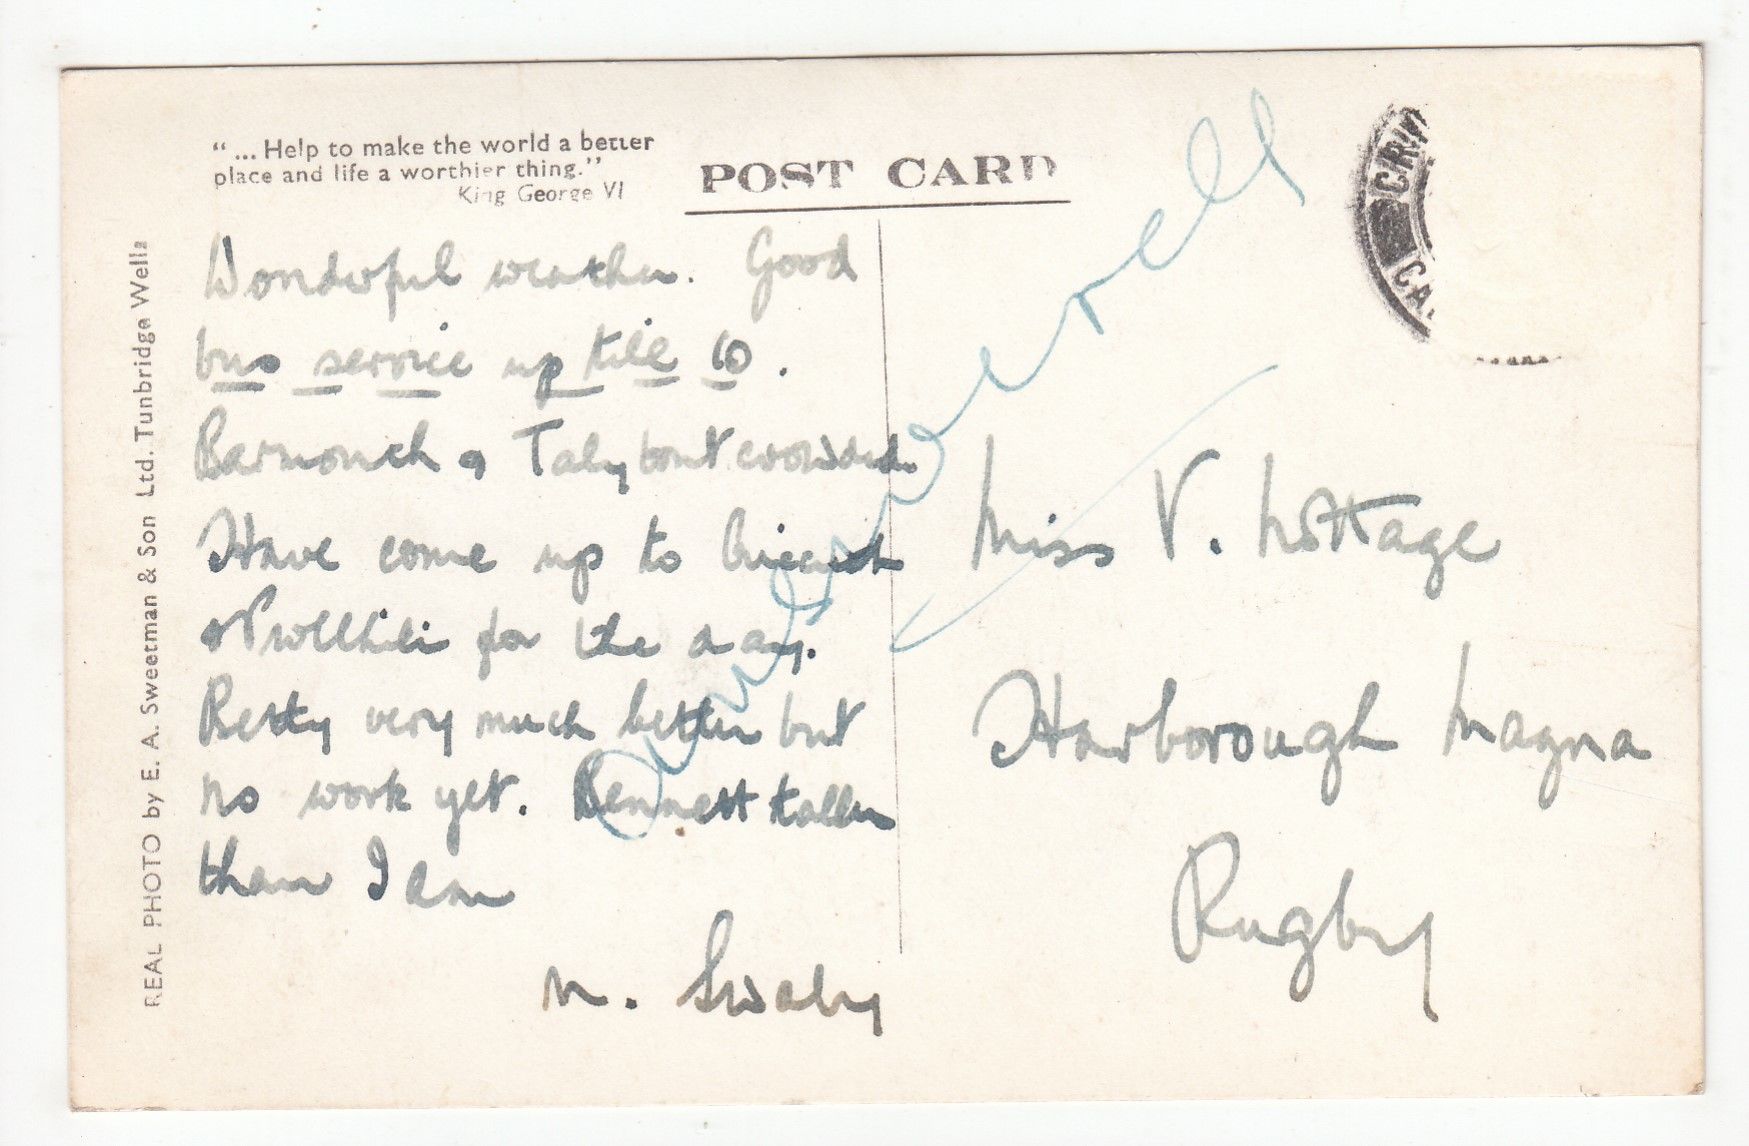 "... Help to make the world a better
place and life a worthier thing."
King George VI
POST CARD
REAL PHOTO by E. A. Sweetman & Son Ltd. Tunbridge Wells
Wonderful weather. Good
bus service up till 10.
Barmouth & Talybont crowded.
Have come up to Criccieth
& Pwllheli for the day.
Betty very much better but
no work yet. Bennett taller
than I am
M. Swaby
Miss V. Nottage
Harborough Magna
Rugby